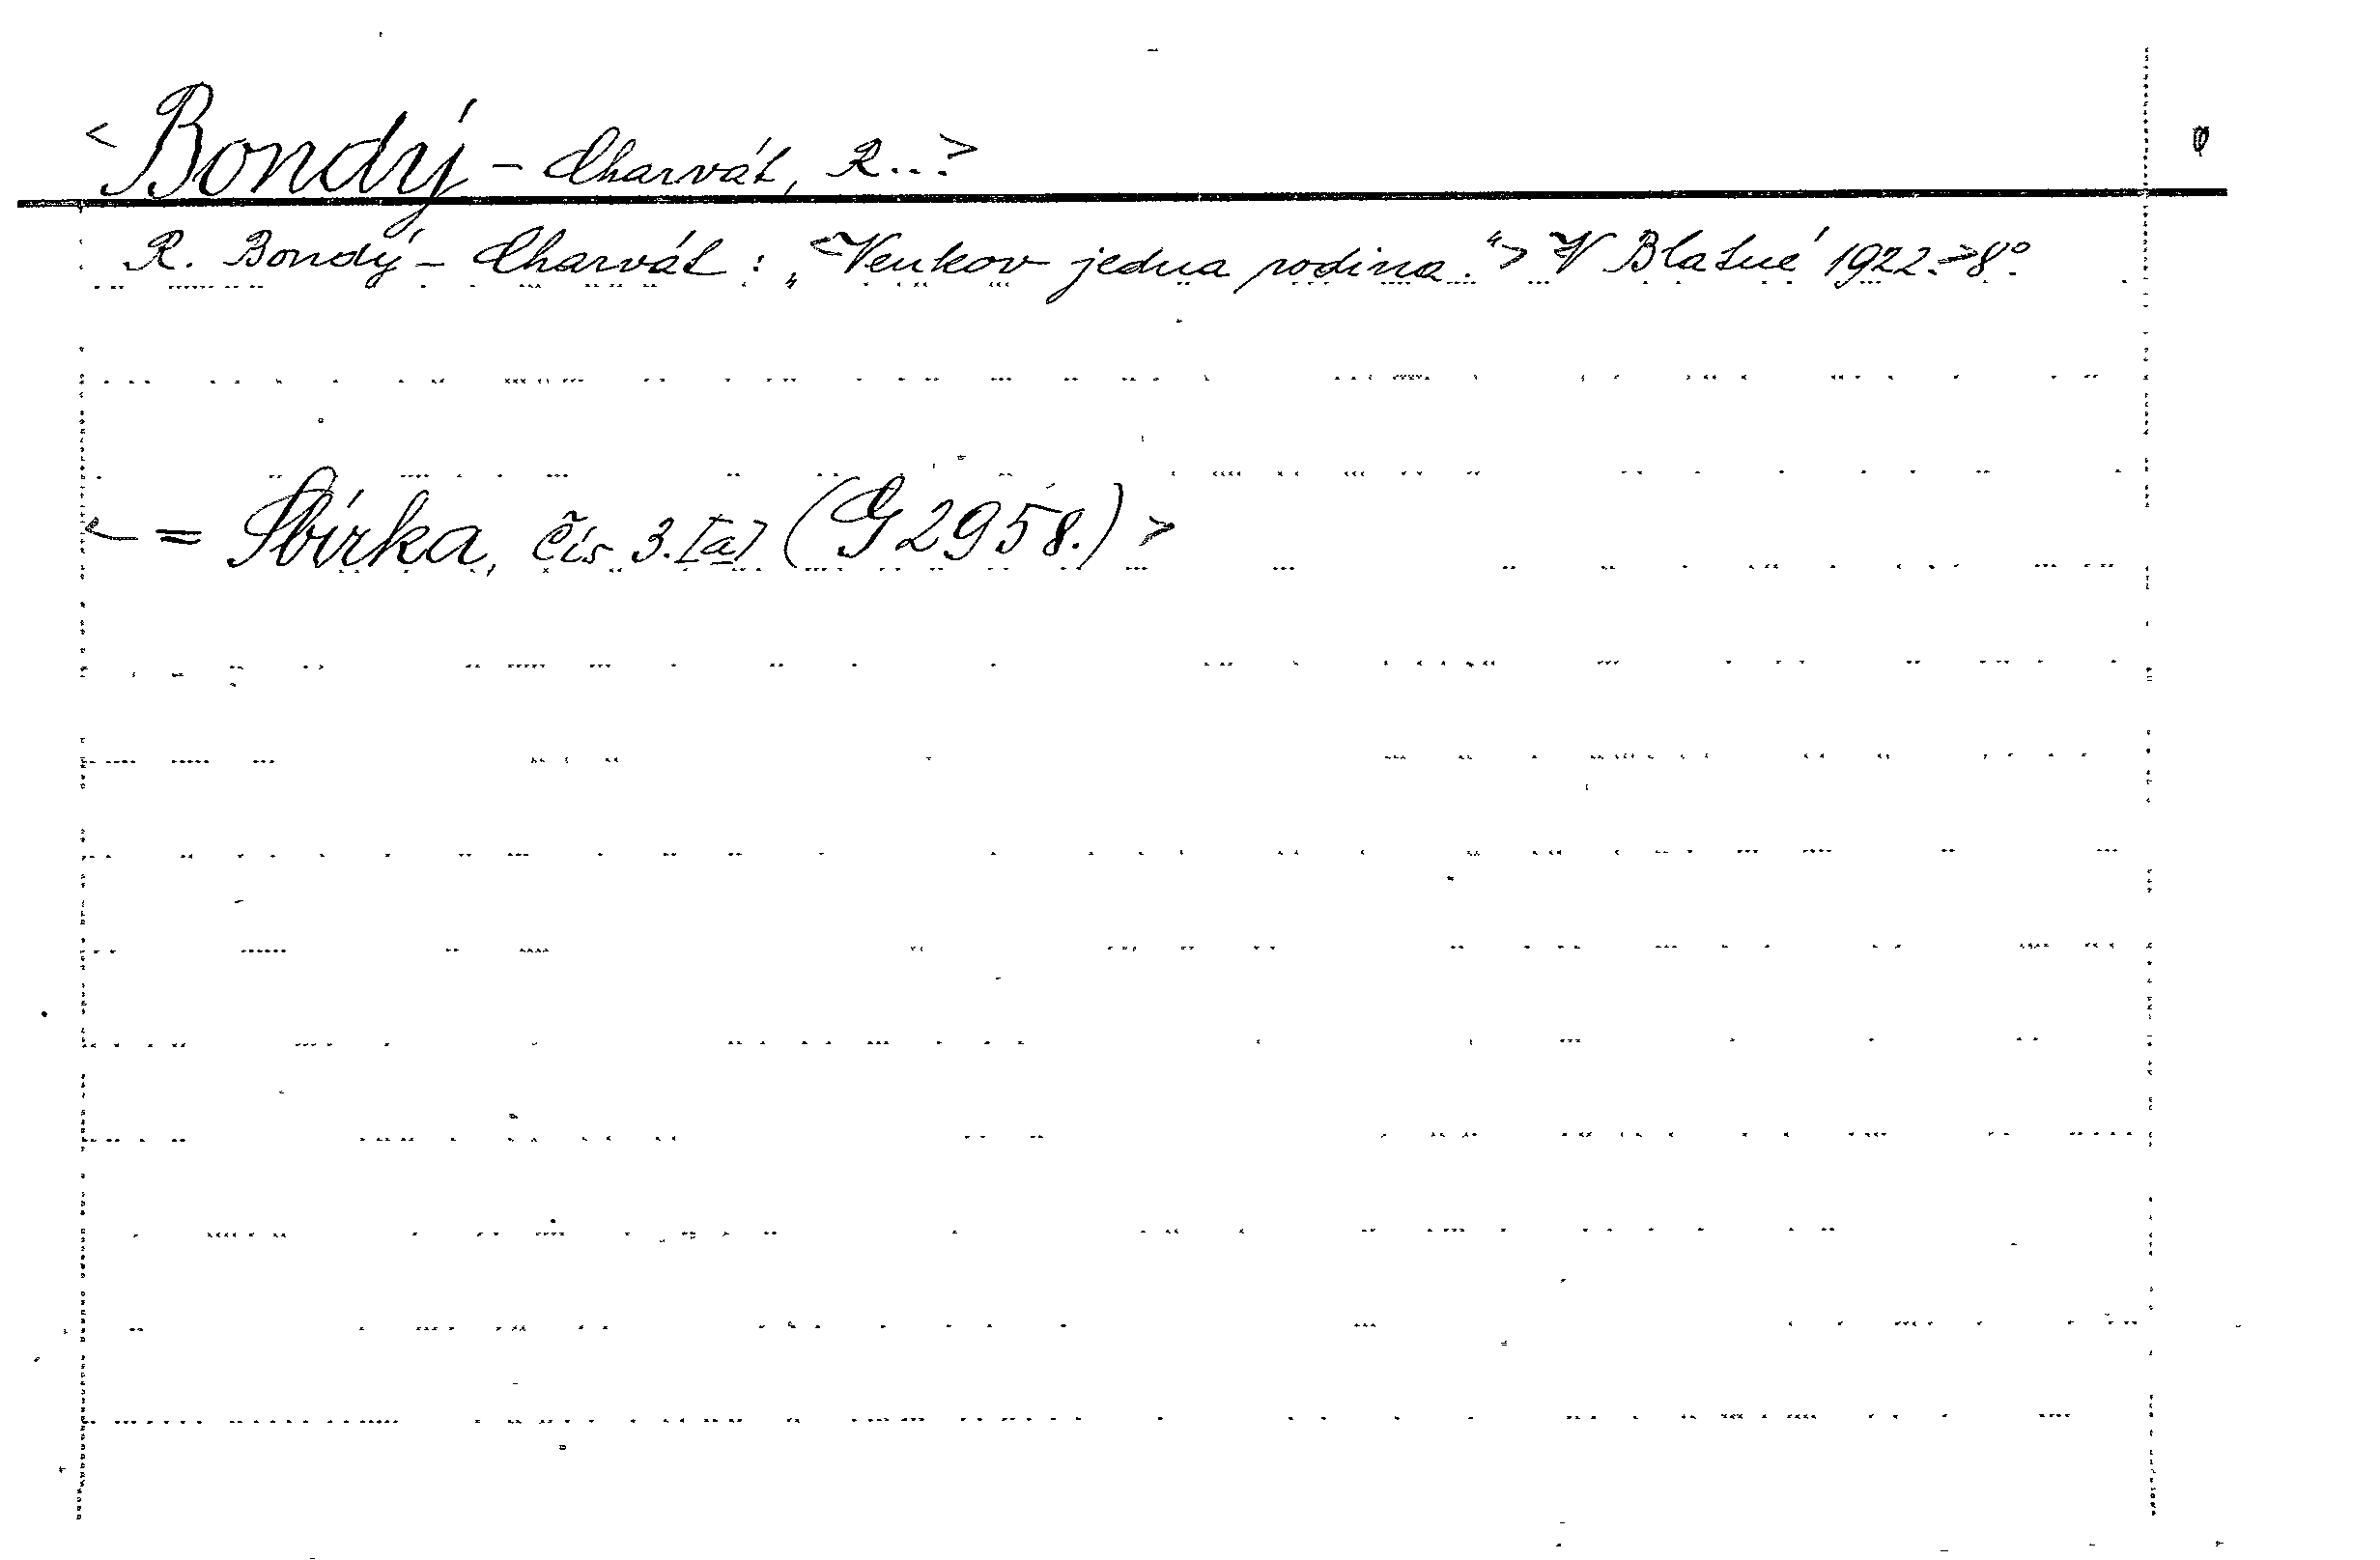 <Bondý - Charvát, R...>
R. Bondý - Charvát: „<Venkov jedna rodina.“> V Blatné 1922.> 8°.
<= Sbírka, čís 3.[a] (G 2958.)>